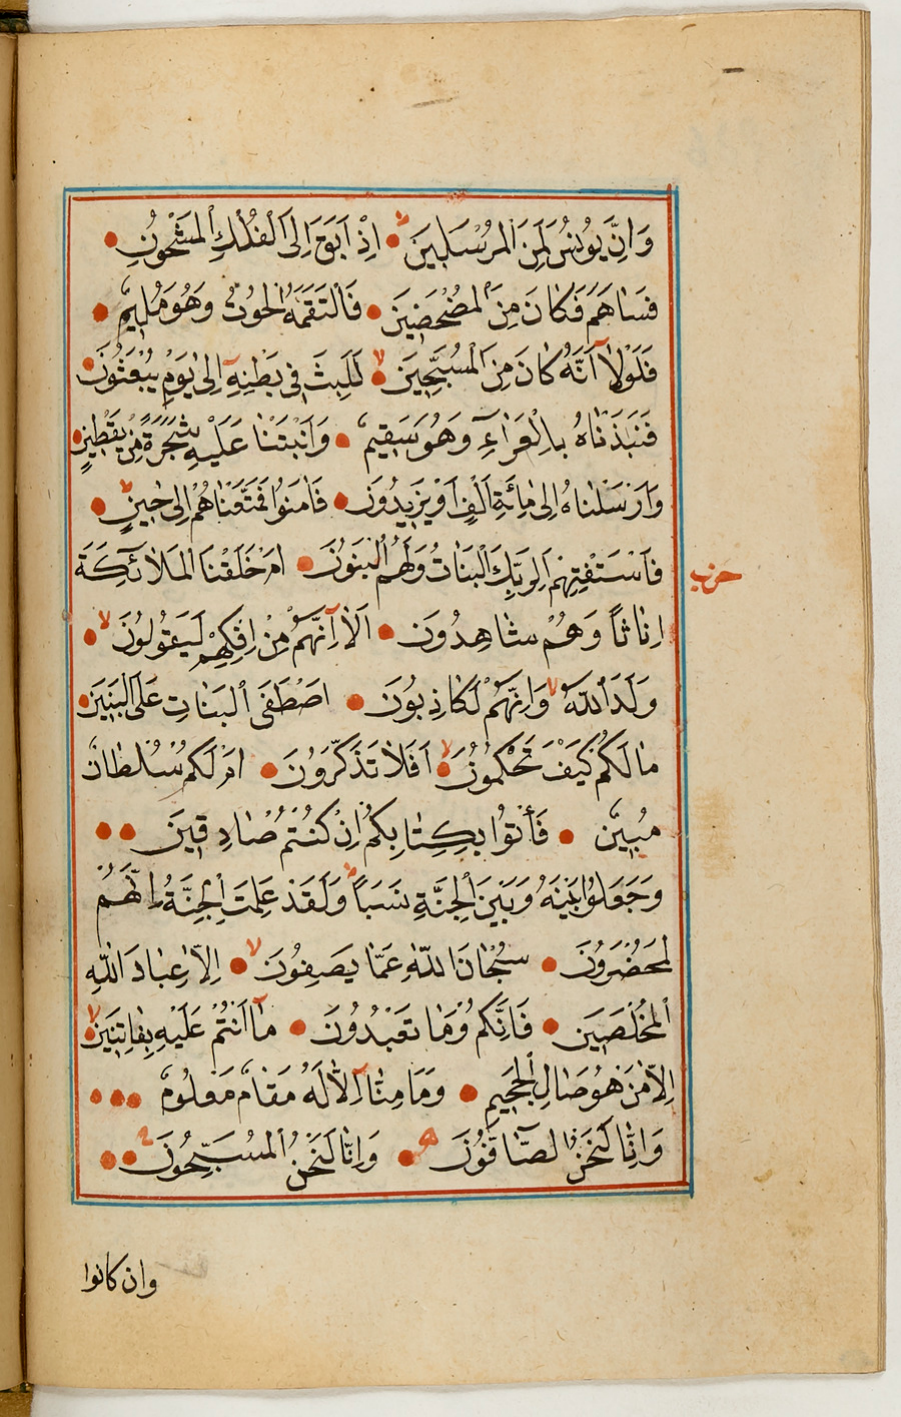 وَاِنَّ يُونُسَ لَمِنَ الْمُرْسَلِينَ اِذْ اَبَقَ اِلَى الْفُلْكِ الْمَشْحُونِ
فَسَاهَمَ فَكَانَ مِنَ الْمُدْحَضِينَ فَالْتَقَمَهُ الْحُوتُ وَهُوَ مُلِيمٌ
فَلَوْلَآ اَنَّهُ كَانَ مِنَ الْمُسَبِّحِينَ لَلَبِثَ فِي بَطْنِهِٓ اِلٰى يَوْمِ يُبْعَثُونَ
فَنَبَذْنَاهُ بِالْعَرَآءِ وَهُوَ سَقِيمٌ وَاَنْبَتْنَا عَلَيْهِ شَجَرَةً مِنْ يَقْطِينٍ
وَاَرْسَلْنَاهُ اِلٰى مِائَةِ اَلْفٍ اَوْ يَزِيدُونَ فَاٰمَنُوا فَمَتَّعْنَاهُمْ اِلٰى حِينٍ
فَاسْتَفْتِهِمْ اَلِرَبِّكَ الْبَنَاتُ وَلَهُمُ الْبَنُونَ اَمْ خَلَقْنَا الْمَلَآئِكَةَ
حزب
اِنَاثاً وَهُمْ شَاهِدُونَ اَلَآ اِنَّهُمْ مِنْ اِفْكِهِمْ لَيَقُولُونَ
وَلَدَ اللّٰهُ وَاِنَّهُمْ لَكَاذِبُونَ اَصْطَفَى الْبَنَاتِ عَلَى الْبَنِينَ
مَا لَكُمْ كَيْفَ تَحْكُمُونَ اَفَلَا تَذَكَّرُونَ اَمْ لَكُمْ سُلْطَانٌ
مُبِينٌ فَأْتُوا بِكِتَابِكُمْ اِنْ كُنْتُمْ صَادِقِينَ
وَجَعَلُوا بَيْنَهُ وَبَيْنَ الْجِنَّةِ نَسَباً وَلَقَدْ عَلِمَتِ الْجِنَّةُ اِنَّهُمْ
لَمُحْضَرُونَ سُبْحَانَ اللّٰهِ عَمَّا يَصِفُونَ اِلَّا عِبَادَ اللّٰهِ
الْمُخْلَصِينَ فَاِنَّكُمْ وَمَا تَعْبُدُونَ مَآ اَنْتُمْ عَلَيْهِ بِفَاتِنِينَ
اِلَّا مَنْ هُوَ صَالِ الْجَحِيمِ وَمَا مِنَّآ اِلَّا لَهُ مَقَامٌ مَعْلُومٌ
وَاِنَّا لَنَحْنُ الصَّآفُّونَ وَاِنَّا لَنَحْنُ الْمُسَبِّحُونَ
وان كانوا